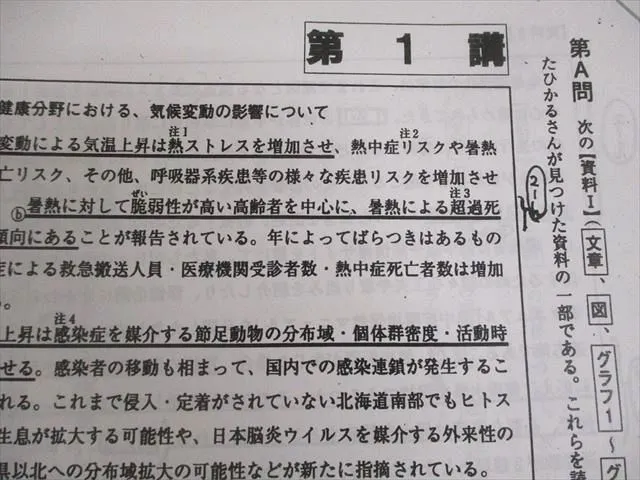 第1講
第A問 次の【資料Ⅰ】(文章、図、グラフ1～グ
たひかるさんが見つけた資料の一部である。これらを読
健康分野における、気候変動の影響について
注1 注2
変動による気温上昇は熱ストレスを増加させ、熱中症リスクや暑熱
亡リスク、その他、呼吸器系疾患等の様々な疾患リスクを増加させ
ぜい 注3
ⓑ暑熱に対して脆弱性が高い高齢者を中心に、暑熱による超過死
傾向にあることが報告されている。年によってばらつきはあるもの
症による救急搬送人員・医療機関受診者数・熱中症死亡者数は増加
る。
注4
上昇は感染症を媒介する節足動物の分布域・個体群密度・活動時
せる。感染者の移動も相まって、国内での感染連鎖が発生するこ
れる。これまで侵入・定着がされていない北海道南部でもヒトス
生息が拡大する可能性や、日本脳炎ウイルスを媒介する外来性の
県以北への分布域拡大の可能性などが新たに指摘されている。